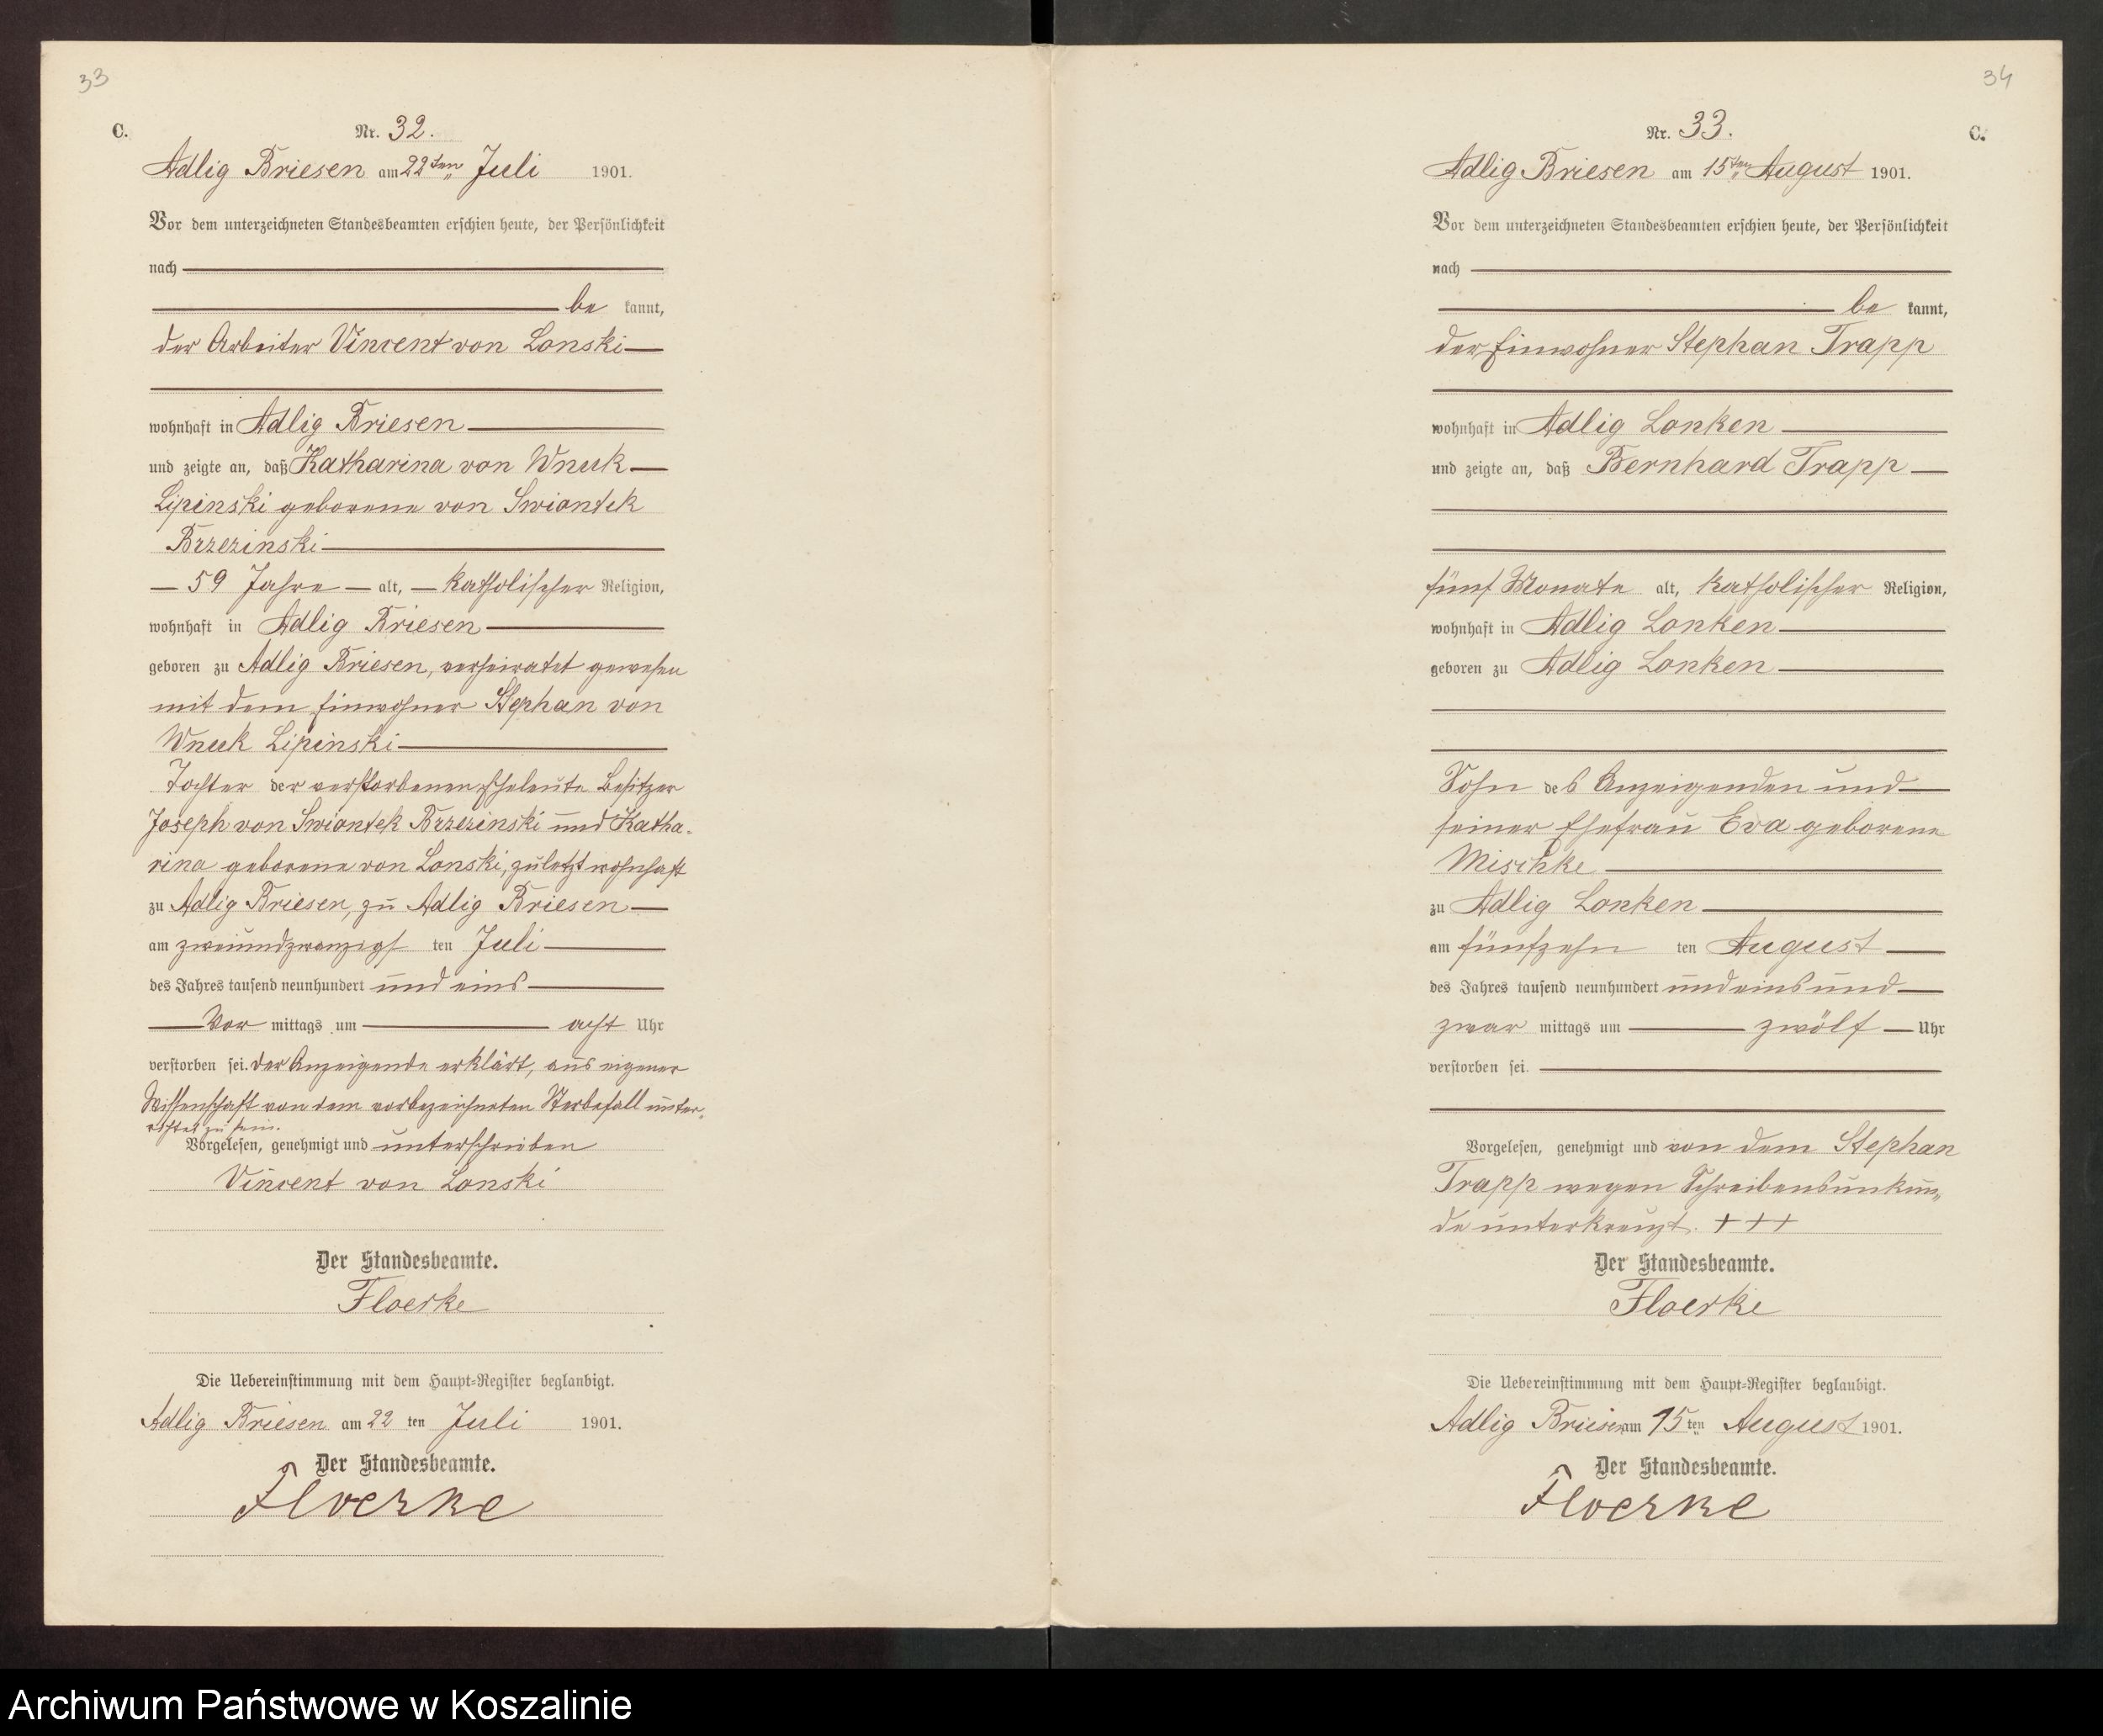 33
C.
Nr. 32.
Adlig Briesen am 22ten Juli 1901.
Vor dem unterzeichneten Standesbeamten erschien heute, der Persönlichkeit
nach
be kannt,
der Arbeiter Vincent von Lonski
wohnhaft in Adlig Briesen
und zeigte an, daß Katharina von Wnuk
Lipinski geborene von Swiontek
Brzezinski
59 Jahre alt, katholischer Religion,
wohnhaft in Adlig Briesen
geboren zu Adlig Briesen, verheiratet gewesen
mit dem Einwohner Stephan von
Wnuk Lipinski
Tochter der verstorbenen Eheleute Besitzer
Joseph von Swiontek Brzezinski und Katha-
rina geborene von Lonski, zuletzt wohnhaft
zu Adlig Briesen, zu Adlig Briesen
am zweiundzwanzigsten Juli
des Jahres tausend neunhundert und eins
Vor mittags um acht Uhr
verstorben sei. Der Anzeigende erklärt, aus eigener
Wissenschaft von dem vorbezeichneten Sterbefall unter-
richtet zu sein.
Vorgelesen, genehmigt und unterschrieben
Vincent von Lonski
Der Standesbeamte.
Floerke
Die Uebereinstimmung mit dem Haupt-Register beglaubigt.
Adlig Briesen am 22 ten Juli 1901.
Der Standesbeamte.
Floerke
34
C.
Nr. 33.
Adlig Briesen am 15ten August 1901.
Vor dem unterzeichneten Standesbeamten erschien heute, der Persönlichkeit
nach
be kannt,
der Einwohner Stephan Trapp
wohnhaft in Adlig Lonken
und zeigte an, daß Bernhard Trapp
fünf Monate alt, katholischer Religion,
wohnhaft in Adlig Lonken
geboren zu Adlig Lonken
Sohn des Anzeigenden und
seiner Ehefrau Eva geborene
Mischke
zu Adlig Lonken
am fünfzehn ten August
des Jahres tausend neunhundert und eins und
zwar mittags um zwölf Uhr
verstorben sei.
Vorgelesen, genehmigt und von dem Stephan
Trapp wegen Schreibensunkun-
de unterkreuzt. +++
Der Standesbeamte.
Floerke
Die Uebereinstimmung mit dem Haupt-Register beglaubigt.
Adlig Briesen am 15ten August 1901.
Der Standesbeamte.
Floerke
Archiwum Państwowe w Koszalinie